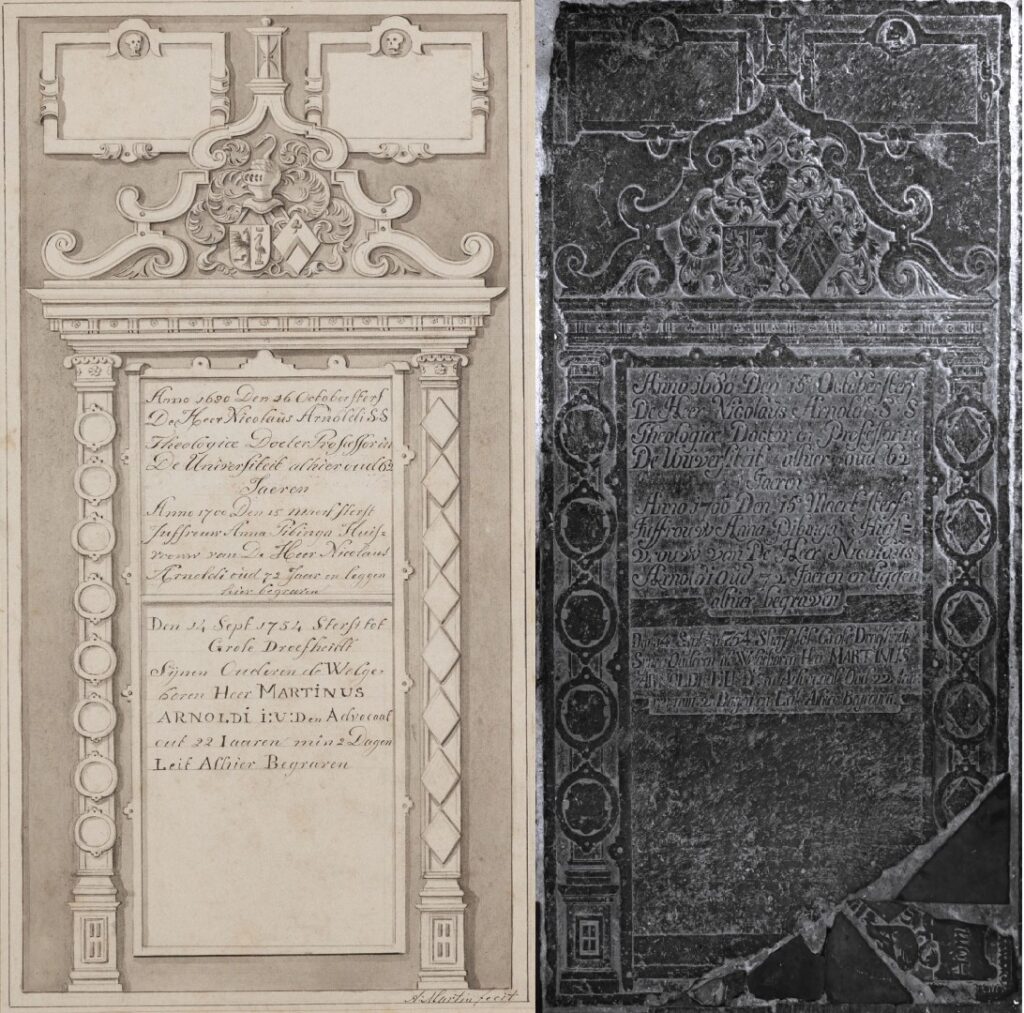 Anno 1680 Den 16 October sterf
De Heer Nicolaüs Arnoldi S.S
Theologiæ Docter Professor in
De Universiteit alhier oud 62
Jaeren
Anno 1700 Den 15 maert sterft
Juffrouw Anna Pibinga Huis-
vrouw van De Heer Nicolaus
Arnoldi oud 72 Jaar en leggen
hier begraven
Den 14 Sept 1754 Sterft tot
Grote Droefheidt
Sijnen Ouderen de Welge-
boren Heer MARTINUS
ARNOLDI i:U:Den Advocaat
out 22 Iaaren min 2 Dagen
Leit Alhier Begraven
A. Martin fecit
Anno 1680 Den 15 October sterf
De Heer Nicolaus Arnoldi S S
Theologiæ Doctor Profess
De Universiteit alhier oud 62
Jaeren
Anno 1700 Den 15 Maert sterf
Juffrouw Anna Pibinga Huis-
vrouw van De Heer Nicolaus
Arnoldi Oud 72 Jaeren en liggen
alhier begraven
1754 Grote Droefheidt
Sijnen Ouderen de Welgeboren Heer MARTINUS
ARNOLDI I U D Advocaat Oud 22
min 2 Dagen En Leit Alhier Begraven